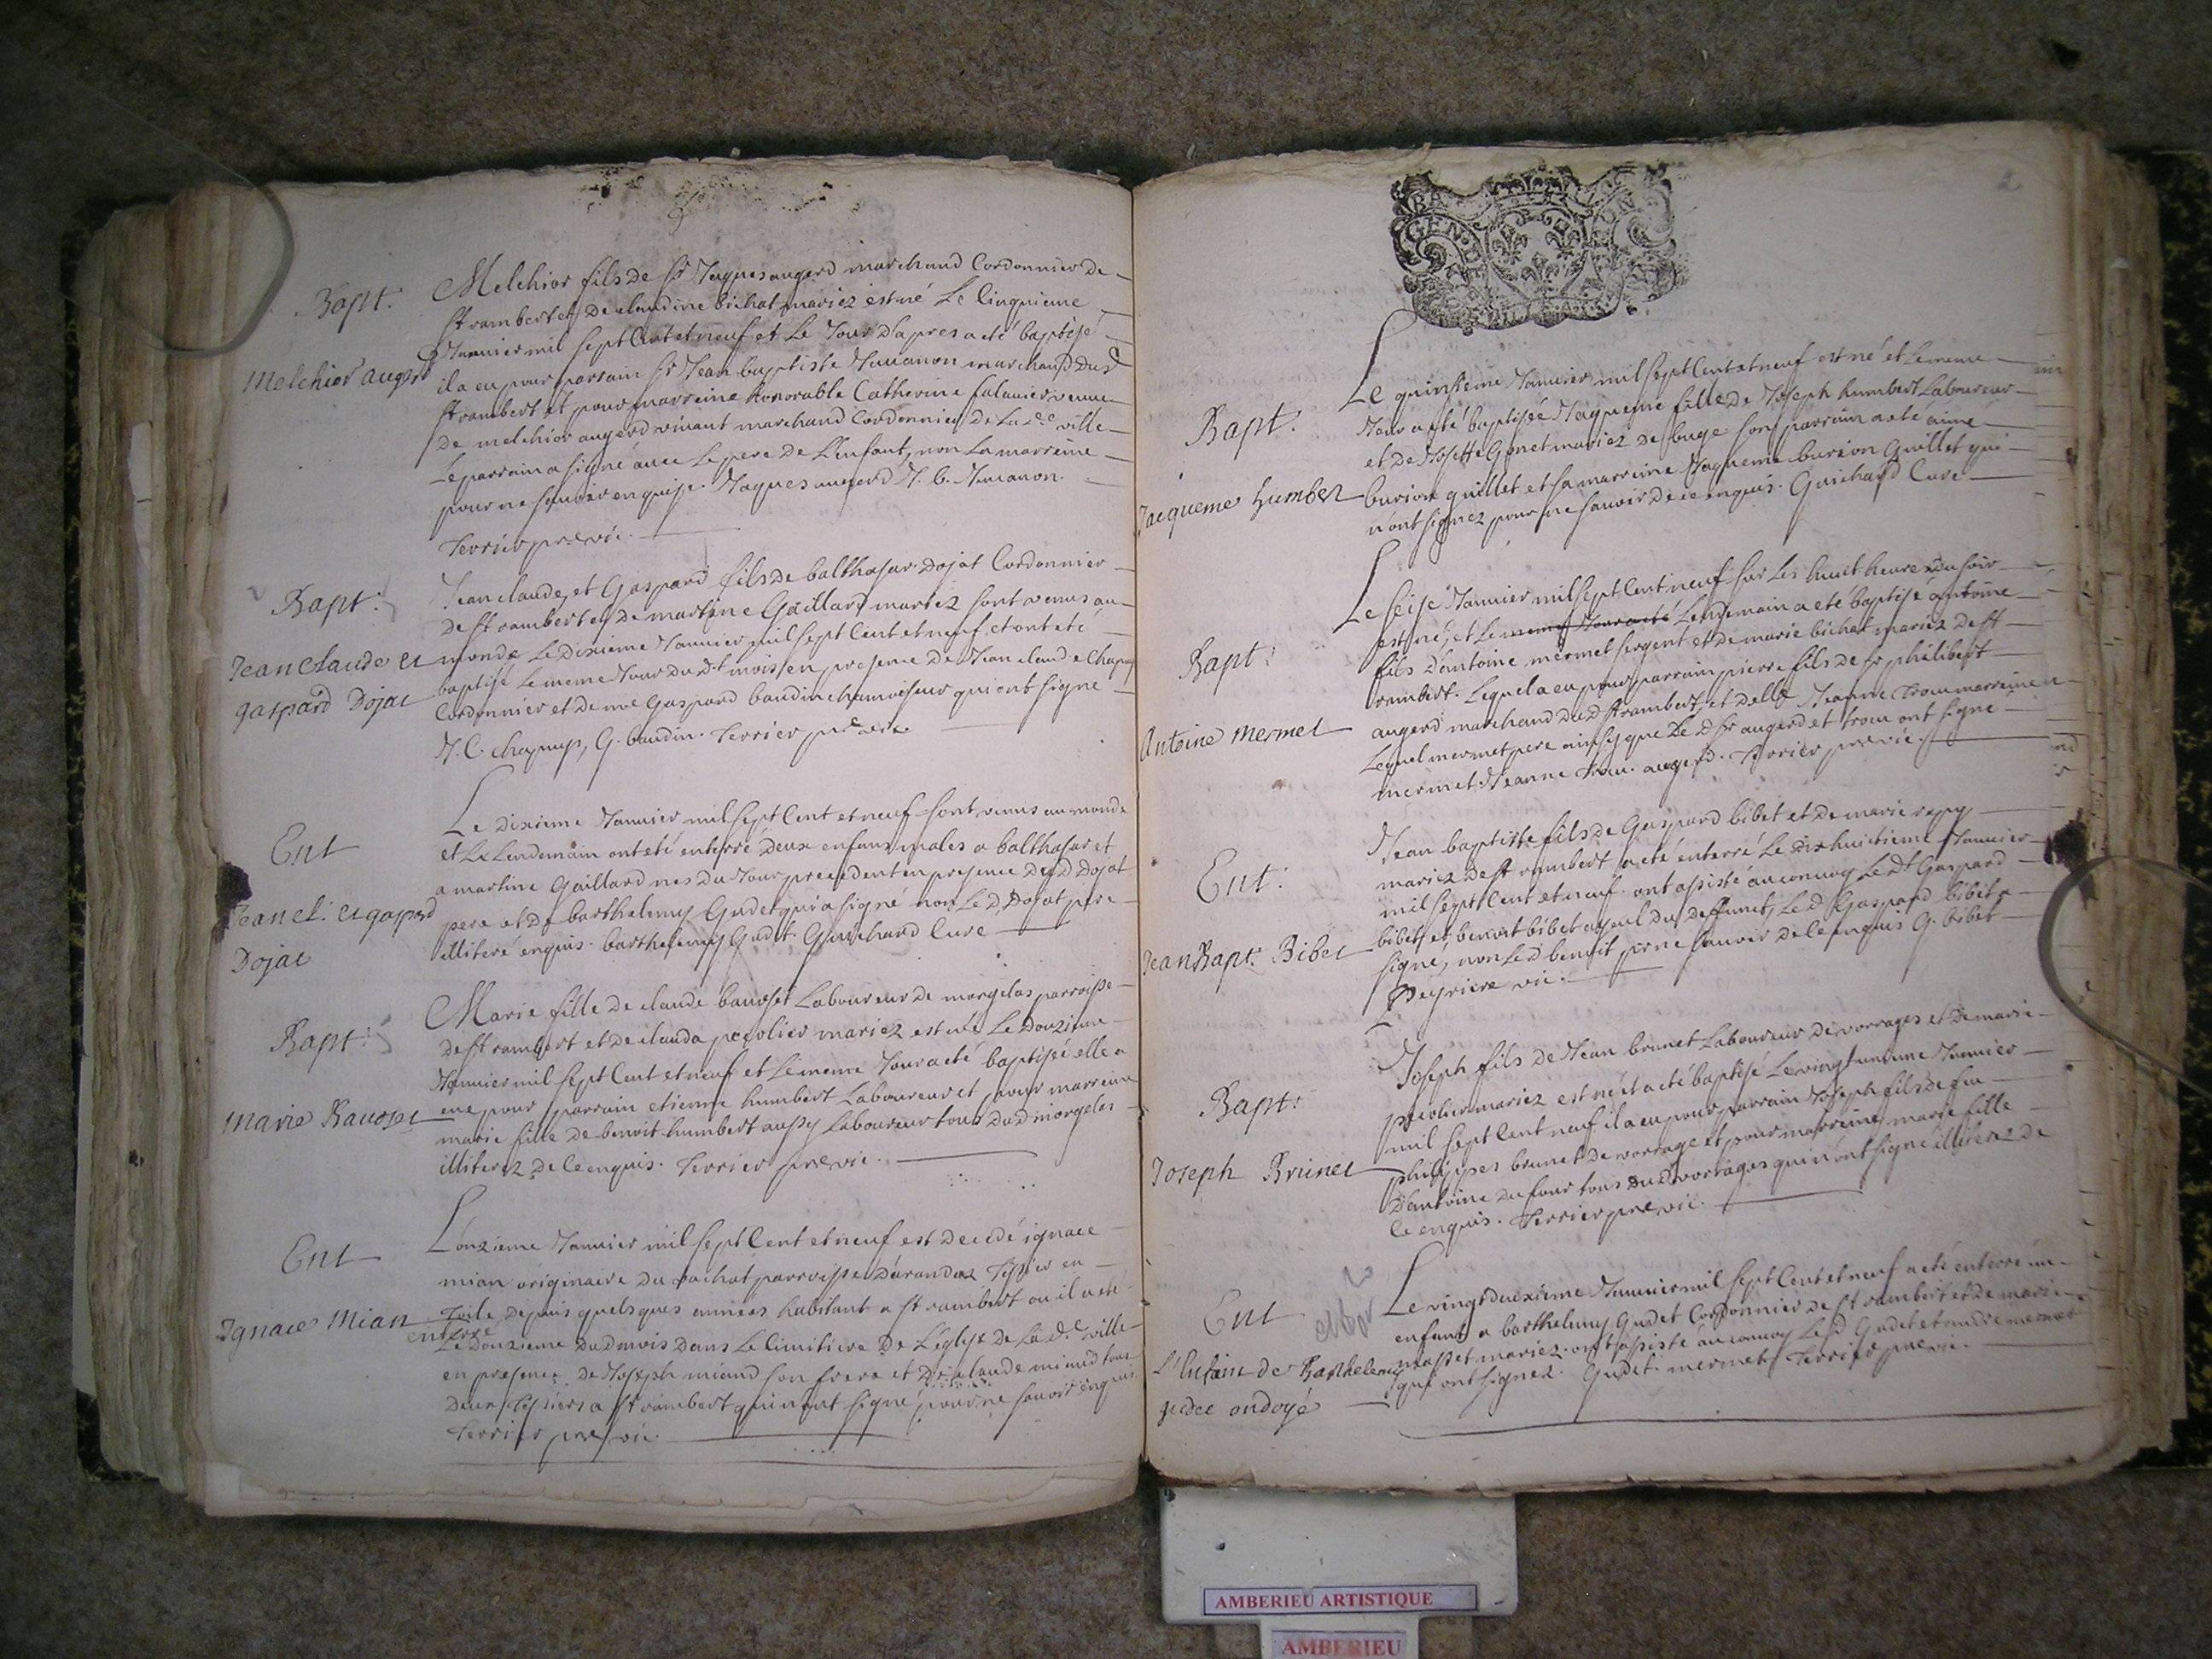 Bapt:
Melchior augerd
Melchior fils de Sr Jaques augerd marchand Cordonnier de
St rambert et de claudine bichat mariez est né Le Cinquieme
Janvier mil sept Cent et neuf et Le Jour d'apres a eté baptisé
il a eu pour parrain Sr Jean baptiste Juuanon marchand dud
St rambert et pour marreine honorable Catherine falauier veuue
de melchior augerd viuant marchand Cordonnier de Lad.e ville
Le parrain a signé auec Le pere de L'enfant, non La marreine
pour ne sçauoir enquise. Jaques augerd J. B. Juuanon.
Terrier pre vic.
Bapt:
Jean Claude et
gaspard Dojat
Jean claude, et Gaspard fils de balthasar Dojat Cordonnier
de St rambert et de martine Gaillard mariez sont venus au
monde Le dixieme Janvier mil sept Cent et neuf, et ont eté
baptisé Le meme Jour dud.t mois en presence de Jean claude Chapuy
Cordonnier et de me Gaspard baudin chamoiseur qui ont signé
J. C. chapuys, G. baudin. Terrier pre vic
Ent
Jean cl: et gaspard
Dojat
Le dixieme Janvier mil sept Cent et neuf sont venus au monde
et Le Lendemain ont eté enterré deux enfans males a balthasar et
a martine Gaillard nes du Jour precedent en presence dud Dojat
pere et de barthelemy Gudet qui a signé non Le d Dojat pere
illiteré enquis. barthelemy Gudet. Guichard Curé
Bapt:
Marie Bauoset
Marie fille de claude bauoset Laboureur de morgelas parroisse
de St rambert et de clauda pecolier mariez est née Le douzieme
Janvier mil sept Cent et neuf et Le meme Jour a eté baptisée elle a
eue pour parrain etienne humbert Laboureur et pour marreine
marie fille de benoit humbert aussy Laboureur tous dud morgelas
illiterez de ce enquis. Terrier pre vic.
Ent
Ignace Mian
L'onzieme Janvier mil sept Cent et neuf est decedé ignace
mian originaire du rachat parroisse d'arandaz Tissier en
Toile depuis quelsques années habitant a St rambert ou il a eté
enterré
Le Douzieme dud mois dans Le Cimitiere de L'eglise de Lad.e ville
en presence de Joseph miand son frere et de claude miand tous
deux Tissiers a St rambert qui n'ont signé pour ne sauoir enquis
Terrier pre vic
2
GEN
Bapt:
Jacqueme humbert
Le quinsieme Janvier mil sept Cent et neuf est né et Le meme
Jour a eté baptisée Jaqueme fille de Joseph humbert Laboureur
et de Josette Gonet mariez de buge son parrain a eté aimé
burion guillet et sa marreine Jaqueme burion Guillet qui
n'ont signez pour ne sauoir de ce enquis. Guichard Curé
Bapt:
Antoine mermet
Le seise Janvier mil sept Cent neuf sur Les huit heures du soir
est né, et Le meme Jour a eté Lendemain a eté baptisé antoine
fils d'antoine mermet sergent et de marie bichat mariez de St
rambert. Lequel a eu pour parrain pierre fils de Sr philibert
augerd marchand dud St rambert, et delle Jeanne Trocu marreine
Lequel mermet pere ainsy que Le d Sr augerd et trocu ont signé
mermet Jeanne Trocu. augerd. Terrier pre vic.
Ent:
Jean Bapt: Bibet
Jean baptiste fils de Gaspard bibet et de marie reppy
mariez de St rambert a eté enterré Le dixhuitieme Janvier
mil sept Cent et neuf. ont assisté au conuoy Le dt Gaspard
bibet, et benoit bibet ayeul du deffunct, Le d Gaspard bibet a
signé, non Le d benoit pr ne sauoir de ce enquis G. bibet
Peyriere vic.
Bapt:
Joseph Brunet
Joseph fils de Jean brunet Laboureur de vorrages et de marie
pecolier mariez est né et a eté baptisé Le vingtunieme Janvier
mil sept Cent neuf il a eu pour parrain Joseph fils de feu
philippes brunet de vorrage et pour marreine marie fille
d'antoine du four tous dud vorrages qui n'ont signé illiterez de
ce enquis. Terrier pre vic.
Ent
L'Enfant de Barthelemy
gudet ondoyé
Le vingtdeuxieme Janvier mil sept Cent et neuf a eté enterré un
enfant a barthelemy Gudet Cordonnier de St rambert et de marie
masset mariez. ont assisté au conuoy Le d Gudet et andré mermet
qui ont signez. Gudet. mermet Terrier pre vic.
AMBERIEU ARTISTIQUE
AMBERIEU